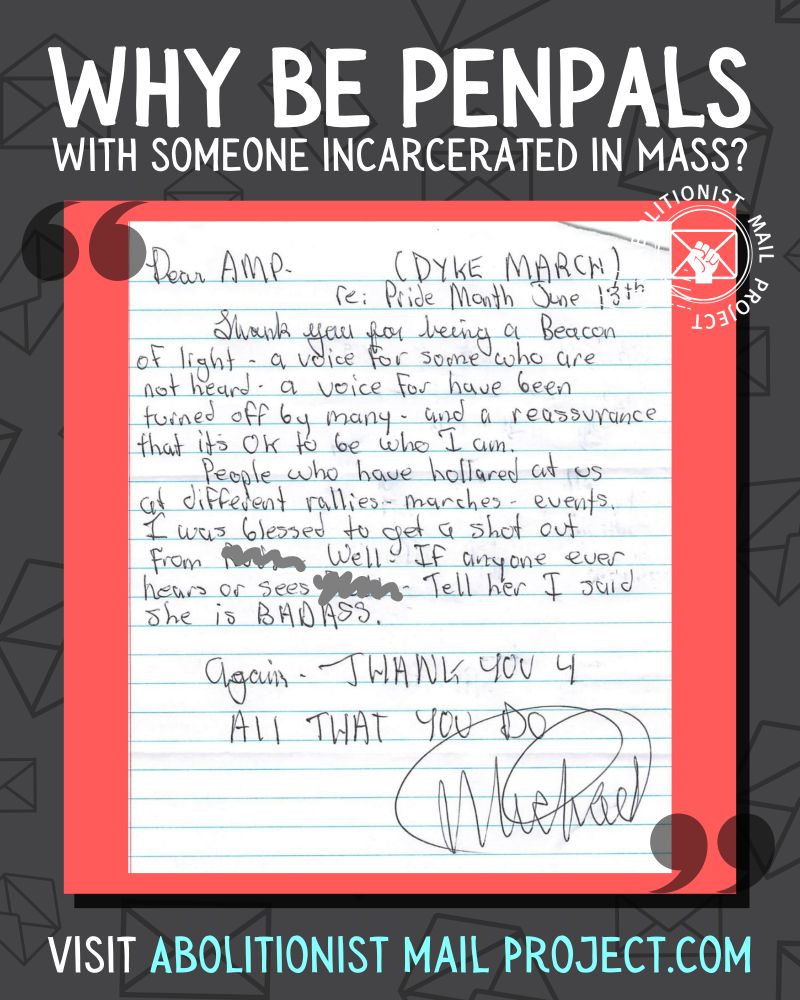 WHY BE PENPALS
WITH SOMEONE INCARCERATED IN MASS?
ABOLITIONIST MAIL PROJECT
Dear AMP- (DYKE MARCH)
re: Pride Month June 13th
Thank you for being a Beacon
of light - a voice for some who are
not heard - a voice for have been
turned off by many - and a reassurance
that it's OK to be who I am.
People who have hollared at us
at different rallies - marches - events.
I was blessed to get a shot out
from Well - If anyone ever
hears or sees - Tell her I said
she is BADASS.
Again - THANK YOU 4
All THAT YOU DO
Michael
VISIT ABOLITIONIST MAIL PROJECT.COM